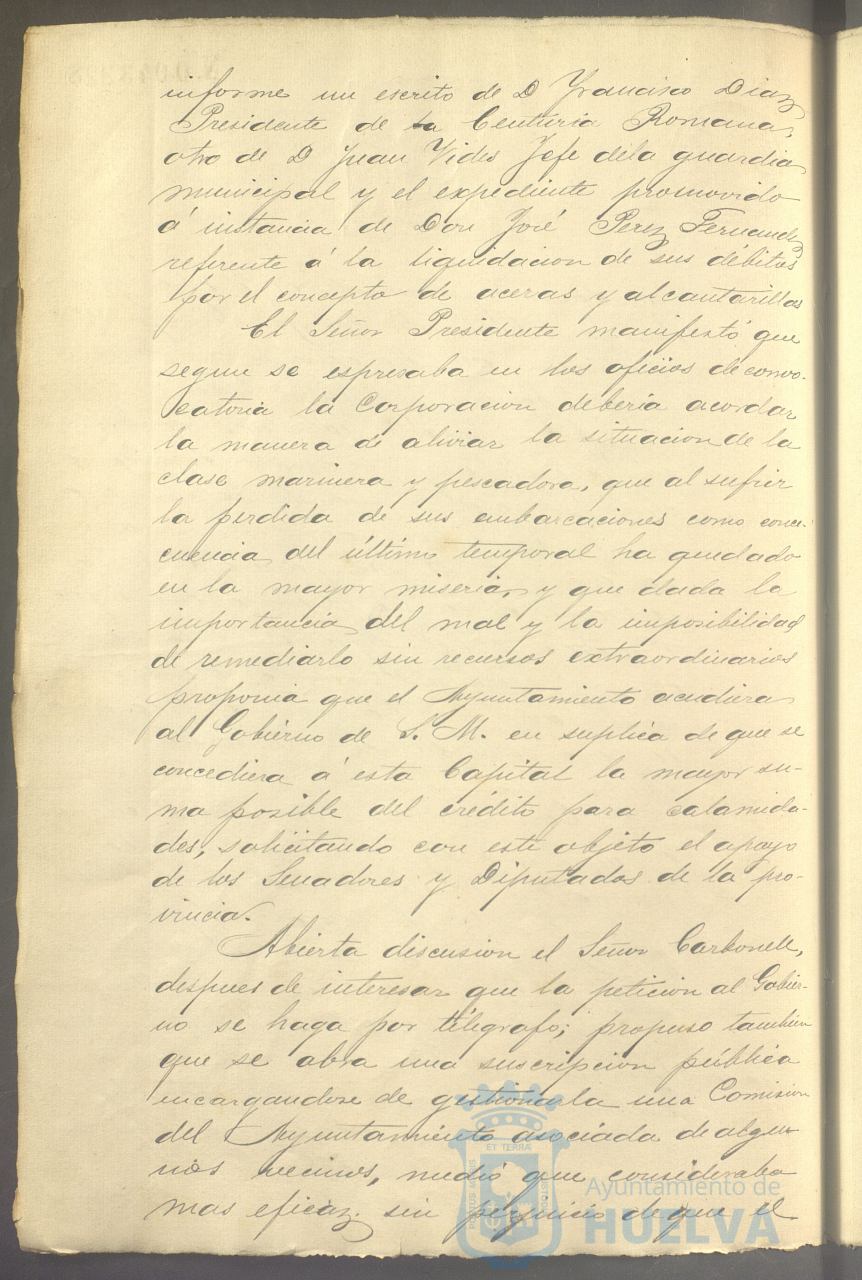 informe un escrito de D Francisco Diaz
Presidente de la Centuria Romana,
otro de D Juan Vides Jefe dela guardia
municipal y el expediente promovido
á instancia de Don José Perez Fernandez
referente á la liquidacion de sus débitos
por el concepto de aceras y alcantarillas
El Señor Presidente manifestó que
segun se espresaba en los oficios de convo-
catoria la Corporacion deberia acordar
la manera de aliviar la situacion de la
clase marinera y pescadora, que al sufrir
la perdida de sus embarcaciones como conce-
cuencia del último temporal ha quedado
en la mayor miseria, y que dada la
importancia del mal y la imposibilidad
de remediarlo sin recursos extraordinarios
proponia que el Ayuntamiento acudiera
al Gobierno de S. M. en suplica de que se
concediera á esta Capital la mayor su-
ma posible del crédito para calamida-
des, solicitando con este objeto el apoyo
de los Senadores y Diputados de la pro-
vincia.
Abierta discusion el Señor Carbonell,
despues de interesar que la peticion al Gobier-
no se haga por télegrafo; propuso tambien
que se abra una suscripcion pública
encargandose de gestionarla una Comision
del Ayuntamiento asociada de algu-
nos vecinos, medio que consideraba
mas eficaz, sin perjuicio de que el
ET TERRA
Ayuntamiento de
HUELVA